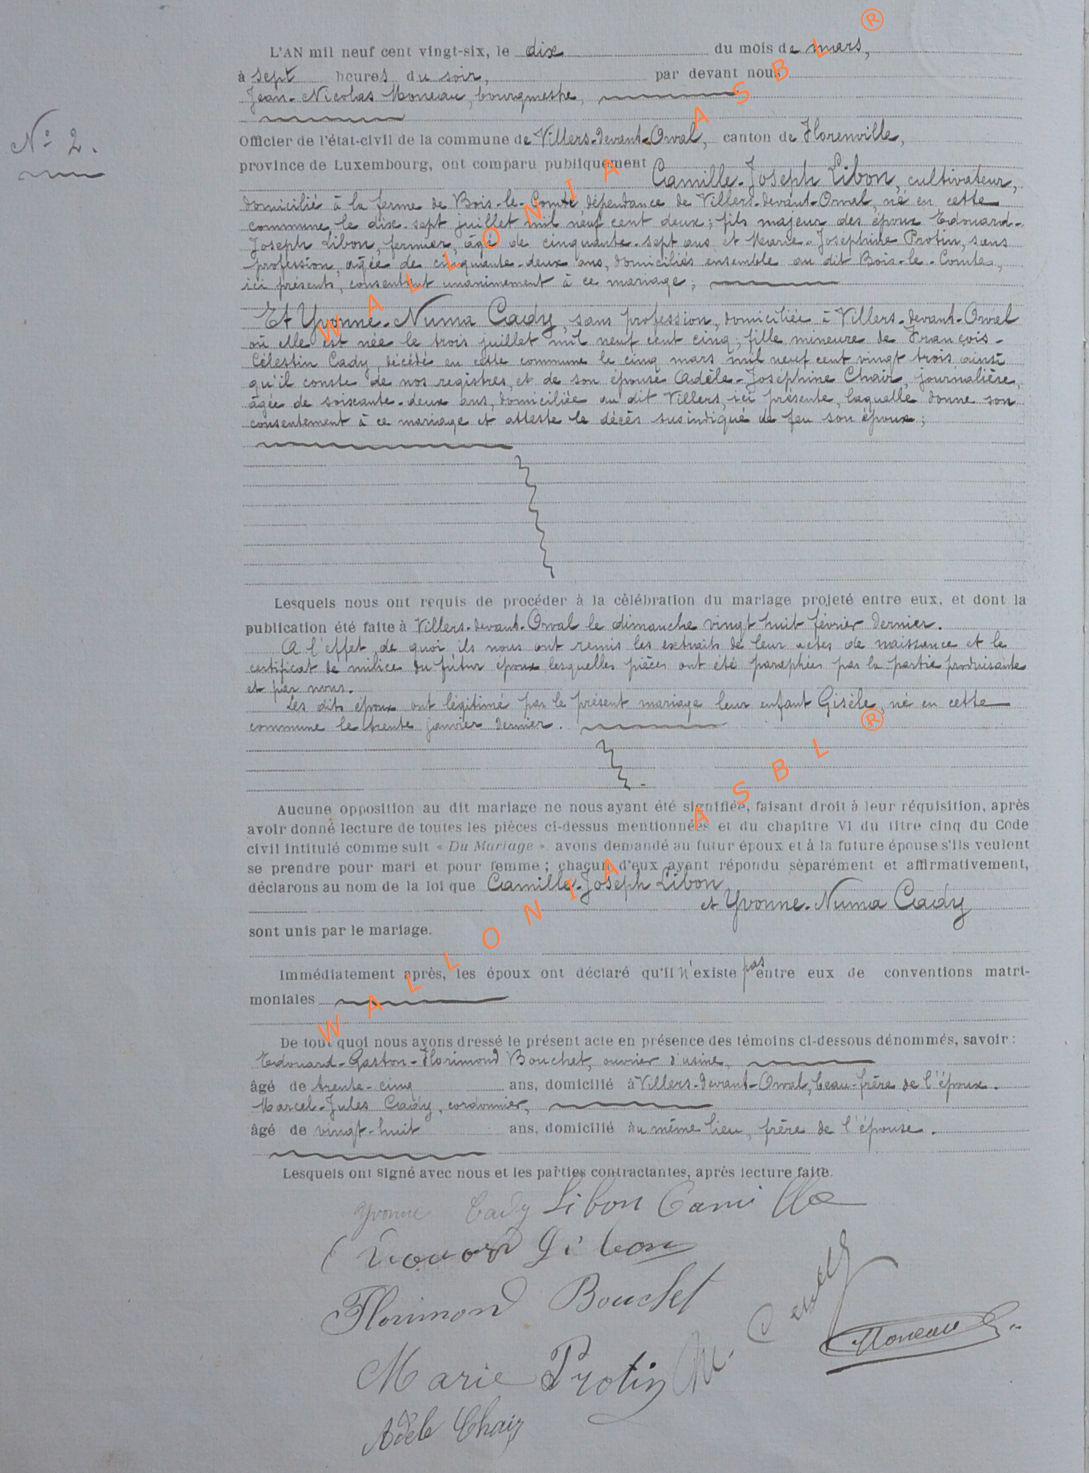 L'AN mil neuf cent vingt-six, le dix du mois de mars,
à sept heures du soir, par devant nous
Jean-Nicolas Moneau, bourgmestre,
N° 2.
Officier de l'état-civil de la commune de Villers-devant-Orval, canton de Florenville,
province de Luxembourg, ont comparu publiquement Camille-Joseph Libon, cultivateur,
domicilié à la ferme de Bois-le-Comte dépendance de Villers-devant-Orval, né en cette
commune, le dix-sept juillet mil neuf cent deux; fils majeur des époux Edouard-
Joseph Libon, fermier, âgé de cinquante-sept ans et Marie-Joséphine Protin, sans
profession, agée de cinquante-deux ans, domiciliés ensemble au dit Bois-le-Comte,
ici présents, consentant unanimement à ce mariage;
Et Yvonne-Numa Cady, sans profession, domiciliée à Villers-devant-Orval
où elle est née le trois juillet mil neuf cent cinq; fille mineure de François-
Célestin Cady, décédé en cette commune le cinq mars mil neuf cent vingt trois ainsi
qu'il conste de nos registres, et de son épouse Adèle-Joséphine Chaix, journalière,
âgée de soixante-deux ans, domiciliée au dit Villers, ici présente, laquelle donne son
consentement à ce mariage et atteste le décès susindiqué de feu son époux;
Lesquels nous ont requis de procéder à la célébration du mariage projeté entre eux, et dont la
publication été faite à Villers-devant-Orval le dimanche vingt huit février dernier.
A l'effet de quoi ils nous ont remis les extraits de leur actes de naissance et le
certificat de milice du futur époux lesquelles pièces ont été paraphées par la partie produisante
et par nous.
Les dits époux ont légitimé par le présent mariage leur enfant Gisèle, né en cette
commune le trente janvier dernier.
Aucune opposition au dit mariage ne nous ayant été signifiée, faisant droit à leur réquisition, après
avoir donné lecture de toutes les pièces ci-dessus mentionnées et du chapitre VI du titre cinq du Code
civil intitulé comme suit « Du Mariage », avons demandé au futur époux et à la future épouse s'ils veulent
se prendre pour mari et pour femme ; chacun d'eux ayant répondu séparément et affirmativement,
déclarons au nom de la loi que Camille-Joseph Libon
et Yvonne-Numa Cady
sont unis par le mariage.
Immédiatement après, les époux ont déclaré qu'il n'existe pas entre eux de conventions matri-
moniales
De tout quoi nous avons dressé le présent acte en présence des témoins ci-dessous dénommés, savoir :
Edouard-Gaston-Florimond Bouchet, ouvrier d'usine,
âgé de trente-cinq ans, domicilié à Villers-devant-Orval, beau-frère de l'époux.
Marcel-Jules Cady, cordonnier,
âgé de vingt-huit ans, domicilié au même lieu, frère de l'épouse.
Lesquels ont signé avec nous et les parties contractantes, après lecture faite.
Yvonne Cady Libon Camille
Edouard Libon
Florimond Bouchet
M. Cady
Moneau
Marie Protin
Adèle Chaix
WALLONIA ASBL ®
WALLONIA ASBL ®